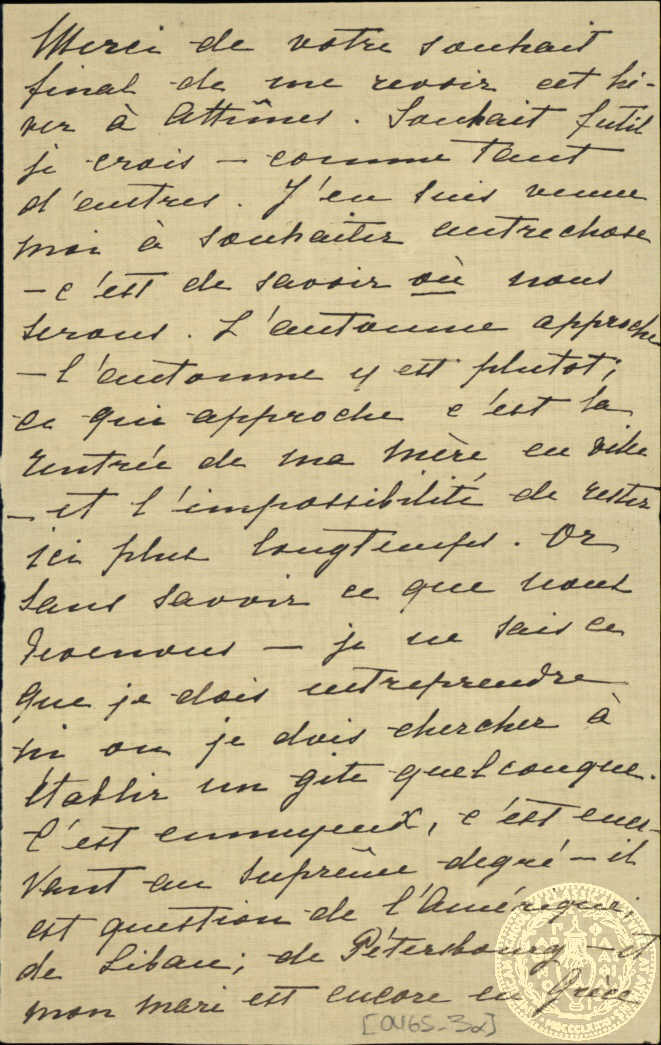 Merci de votre souhait
final de me revoir cet hi-
ver à Athènes. Souhait futil
je crois – comme tant
d'autres. J'en suis venue
moi à souhaiter autrechose
– c'est de savoir où nous
serons. L'automne approche
– l'automne y est plutot;
ce qui approche c'est la
rentrée de ma mère en ville
– et l'impossibilité de rester
ici plus longtemps. Or
sans savoir ce que nous
devenons – je ne sais ce
que je dois entreprendre
ni ou je dois chercher à
établir un gite quelconque.
C'est ennuyeux, c'est ener-
vant au suprême degré – il
est question de l'Amérique;
de Libau; de Pétersbourg – et
mon mari est encore en Grèce